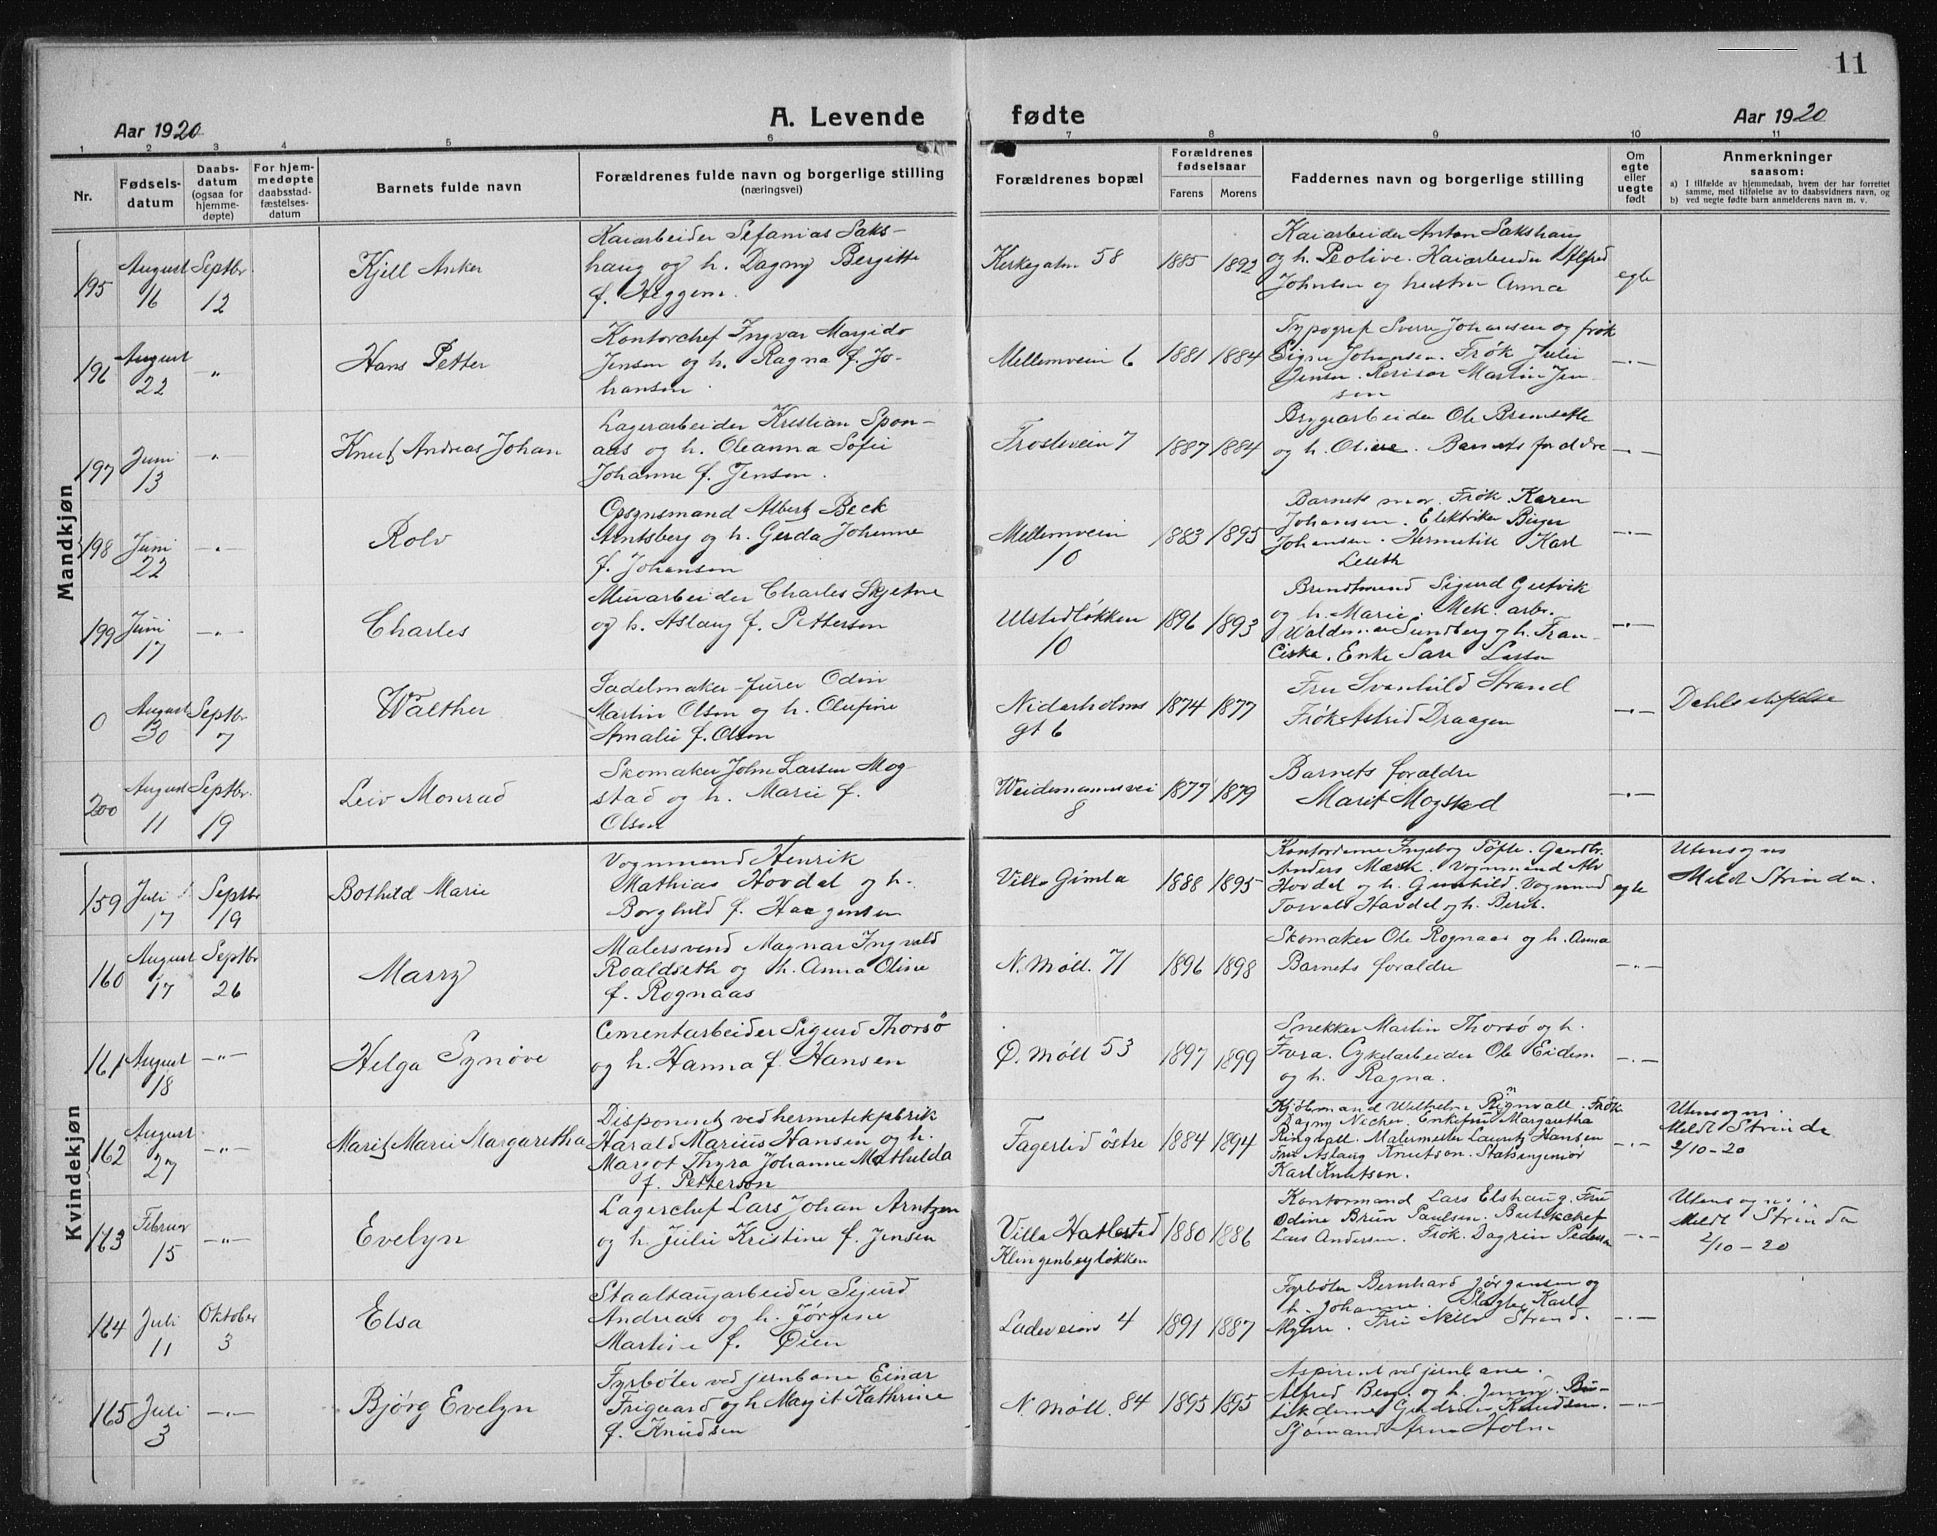 11
Aar 1920
A. Levende
fødte
Aar 1920
1 2 3 4 5 6 7 8 9 10 11
Nr.
Fødsels-
datum
Daabs-
datum
(ogsaa for
hjemme-
døpte)
For hjem-
medøpte
daabsstad-
fæstelses-
datum
Barnets fulde navn
Forældrenes fulde navn og borgerlige stilling
(næringsvei)
Forældrenes bopæl
Forældrenes
fødselsaar
Farens Morens
Faddernes navn og borgerlige stilling
Om
egte
eller
uegte
født
Anmerkninger
saasom:
a) I tilfælde av hjemmedaab, hvem der har forrettet
samme, med tilføielse av to daabsvidners navn, og
b) ved uegte fødte barn anmelderens navn m. v.
Mandkjøn
195 August 16 Septbr. 12
Kjell Anker
Kaiarbeider Sefanias Saks-
haug og h. Dagny Bergitte
f. Heggem.
Kirkegatn 58
1885 1892
Kaiarbeider Anton Sakshaug
og h. Peolive. Kaiarbeider Alfred
Johnsen og hustru Anna
egte
196 August 22 -"-
Hans Petter
Kontorchef Ingvar Margido
Jensen og h. Ragna f. Jo-
hansen.
Mellemveien 6
1881 1884
Typograf Sverre Johansen og frøk
Signe Johansen. Frøk Julie
Jensen. Revisor Martin Jen-
sen
-"-
197 Juni 13 -"-
Knut Andreas Johan
Lagerarbeider Kristian Spon-
aas og h. Oleanna Sofie
Johanne f. Jenson.
Frosteveien 7
1887 1884
Brygearbeider Ole Bremseth
og h. Olive. Barnets forældre
-"-
198 Juni 22 -"-
Rolv
Opsynsmand Albert Beck
Arntsberg og h. Gerda Johanne
f. Johansen
Mellemveien
10
1883 1895
Barnets mor. Frøk. Karen
Johansen. Elektriker Birger
Johansen. Karl
-"-
199 Juni 17 -"-
Charles
Murarbeider Charles Skjetne
og h. Aslaug f. Petterson
Ulstadløkken
10
1896 1893
Brandmand Sigurd
og h. Marie. Mek. arb.
Waldemar Sundberg og h. Fran-
ciska. Enke Sara Larsen
-"-
0 August 30 Septbr. 7
Walther
Sadelmaker-furer Odin
Martin Olson og h. Olufine
Amalie f. Olson
Nidarholms
gt 6
1874 1877
Fru Svanhild Strand
Frøk Astrid Draagen
-"-
Dahls stiftelse
200 August 11 Septbr. 19
Leiv Monrad
Skomaker John Larsen Mog-
stad og h. Marie f.
Olsen
Weidemannsvei
8
1877 1879
Barnets forældre
Marit Mogstad
-"-
Kvindekjøn
159 Juli 17 Septbr 19
Bothild Marie
Vognmand Henrik
Mathias Hovdal og h.
Borghild f. Haagensen
Villa Gimla
1888 1895
Kontordame Ingeborg Tófte. Gaardbr.
Anders Mæhk. Vognmand Alv
Hovdal og h. Gunhild. Vognmand
Torvald Hovdal og h. Berit.
egte
Utensogns
Meldt Strinda.
160 August 17 Septbr 26
Marry
Malersvend Magnar Ingvald
Roaldseth og h. Anna Oline
f. Rognaas
N. Møll. 71
1896 1898
Skomaker Ole Rognaas og h. Anna
Barnets forældre
-"-
161 August 18 -"-
Helga Synøve
Cementarbeider Sigurd Thorsø
og h. Hanna f. Hansen
Ø. Møll 53
1897 1899
Snekker Martin Thorsø og h.
Ivra. Cykelarbeider Ole Eidem
og h. Ragna.
-"-
162 August 27 -"-
Marit Marie Margaretha
Disponent ved hermetikfabrik
Harald Marius Hansen og h.
Margot Thyra Johanne Mathilda
f. Petterson
Fagerlid østre
1884 1894
Kjøbmand Wilhelm Ringvall. Frøk
Dagny Nicher. Enkefru Margaretha
Ringvall. Malermester Lauritz Hansen
Fru Aslaug Knutson. Statsingeniør
Karl Knutsen.
-"-
Utensogns.
Meldt Strinda
2/10-20
163 Februar 15 -"-
Evelyn
Lagerchef Lars Johan Arntzen
og h. Julie Kristine f. Jensen
Villa Hatlestad
Klingenbergløkken
1880 1886
Kontormand Lars Elshaug. Fru
Odine Brun Paulsen. Butikchef
Lars Andersen. Frøk. Dagrun Pedersen
-"-
Utensogns.
Meldt Strinda
2/10-20
164 Juli 11 Oktober 3
Elsa
Staaltaugarbeider Sigurd
Andreas og h. Jørgine
Martine f. Øien
Ladeveien 4
1891 1887
Fyrbøter Bernhard Jørgensen og
h. Johanne. Slagter Karl
Myhre. Fru Nella Strand.
-"-
165 Juli 3 -"-
Bjørg Evelyn
Fyrbøter ved jernbane Einar
Friguard og h Margit Kathrine
f. Knudsen
N. Møll. 84
1895 1895
Aspirent ved jernbane.
Alfred Berg. og h. Jenny. Bu-
tikdame Gudrun Knudsen.
Sjømand Arne Holm
-"-